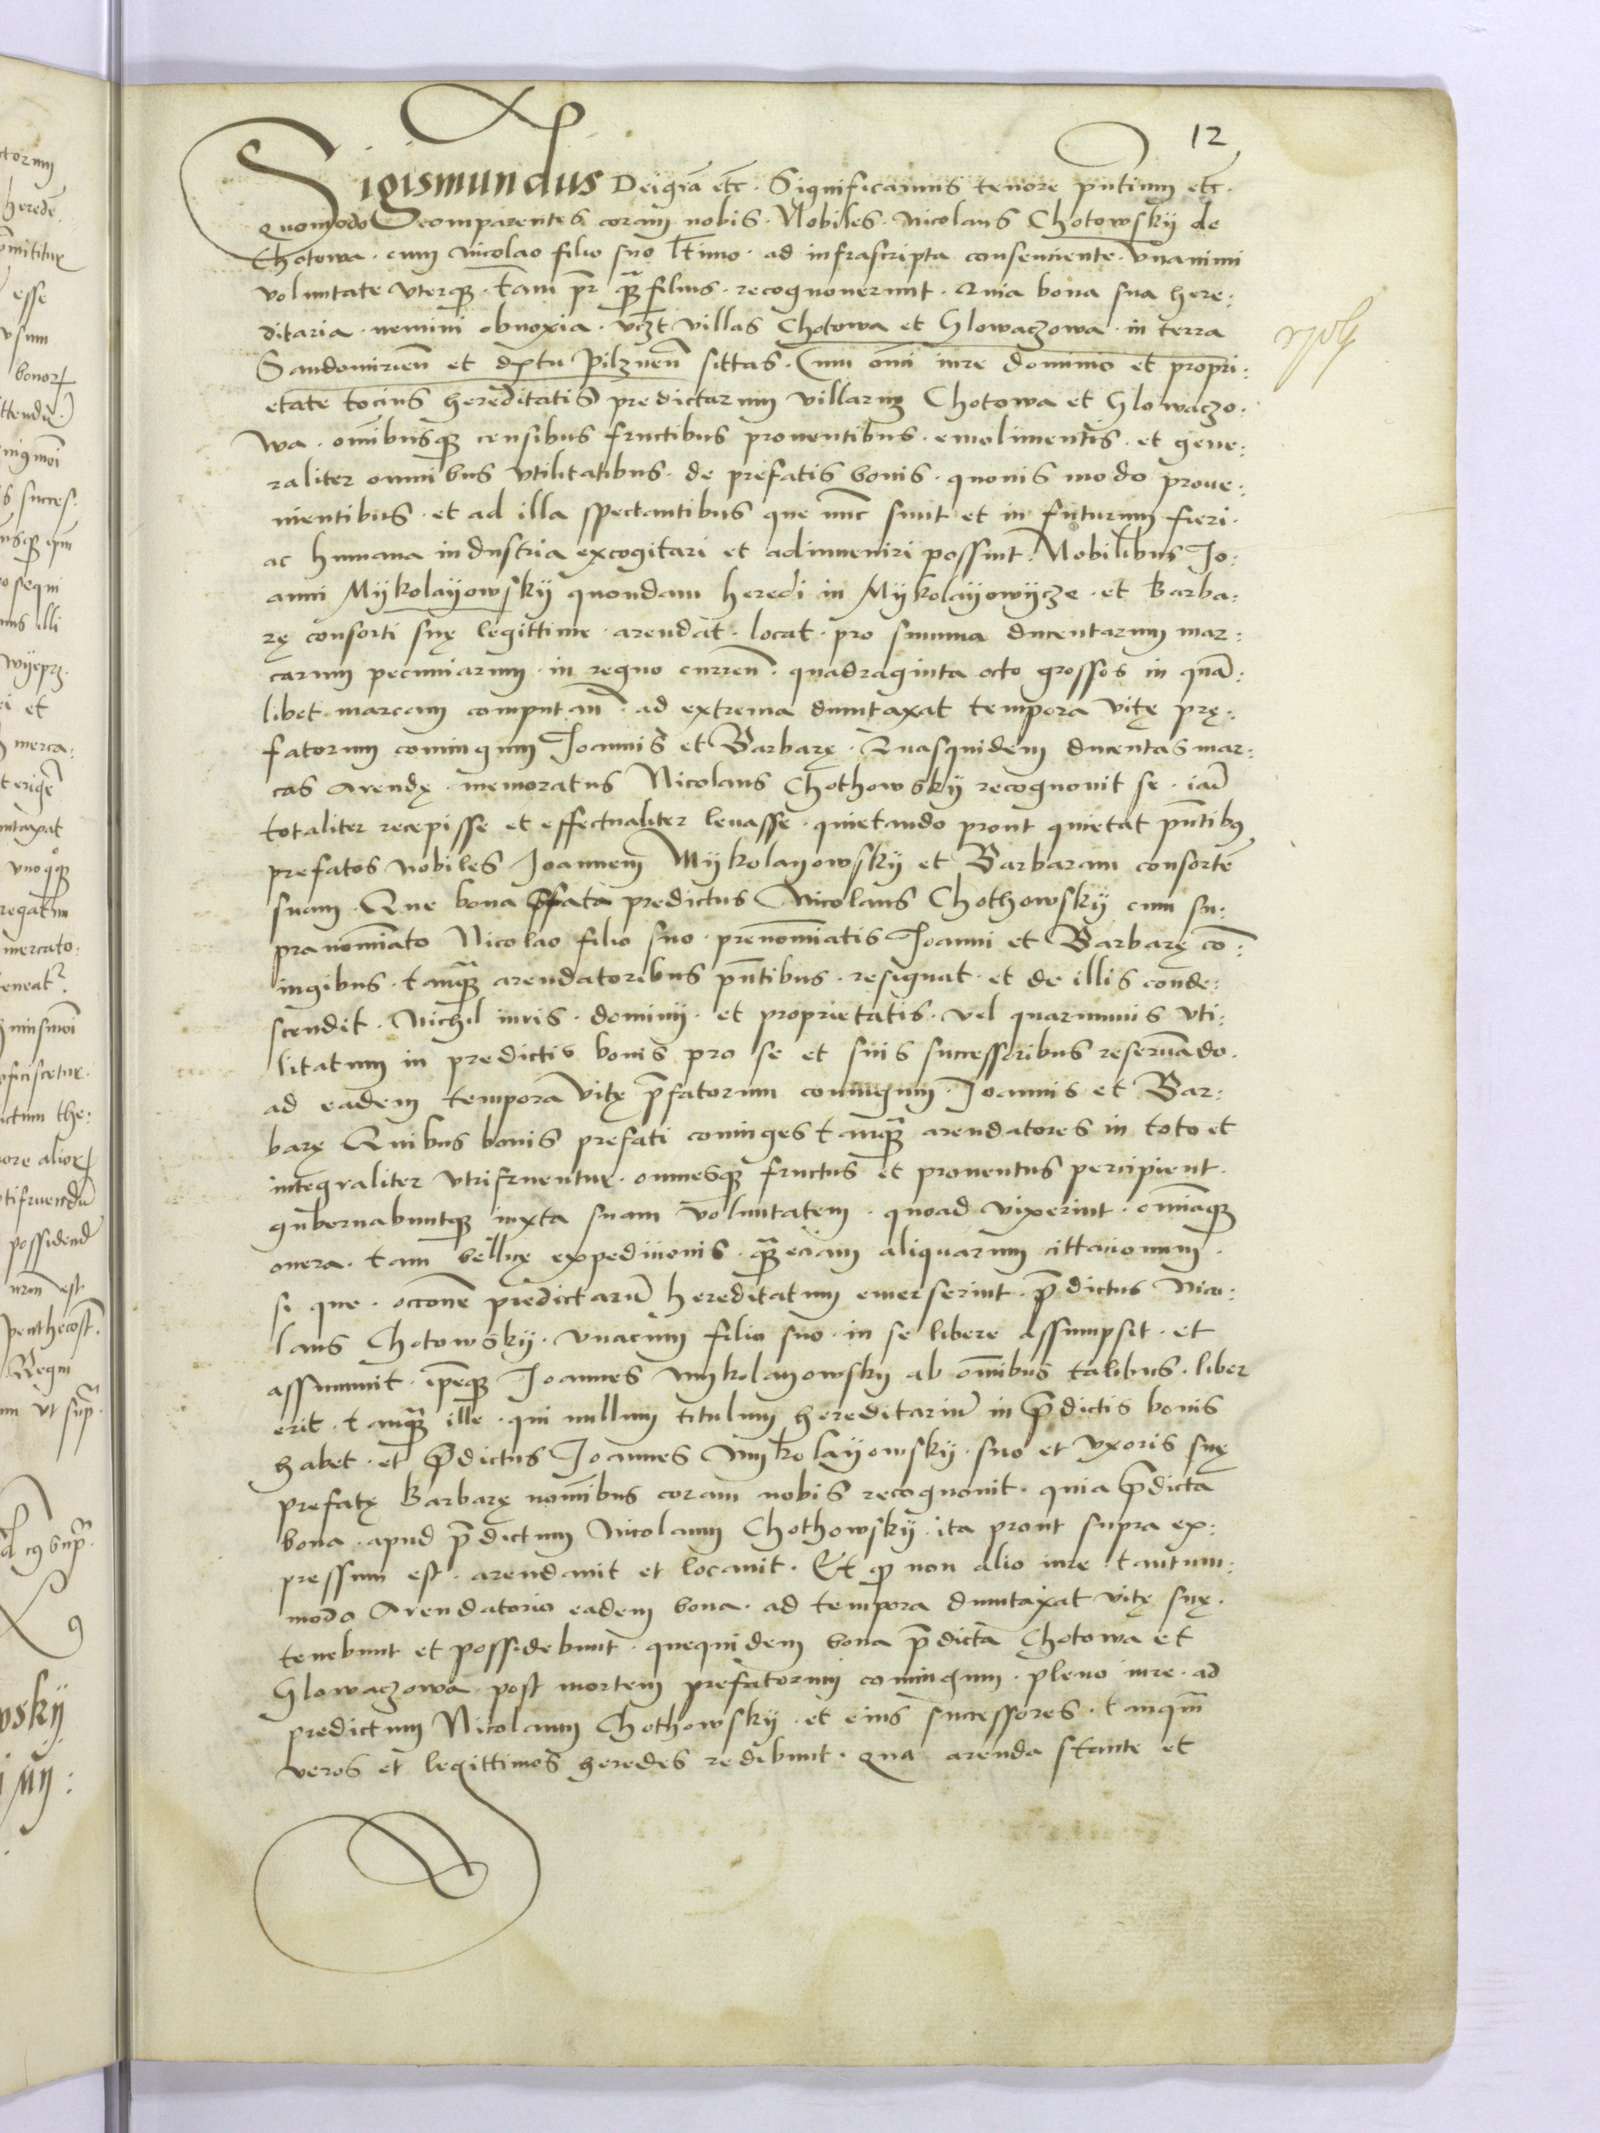 12
Sigismundus Dei grã etc̃. Significamus tenore pñtium etc̃.
quomodo comparentes coram nobis. Nobiles. Nicolaus Chotowskÿ de
Chotowa. cum Nicolao filio suo lt̃imo. ad infrascripta consenciente. vnanimi
voluntate vterqꝫ. tam pr̃ qꝫ̃ filius. recognouerunt. Quia bona sua here:
ditaria. nemini obnoxia. vcꝫt villas Chotowa et Glowaczowa in terra
Sandomirieñ et dr̃tu Pilzneñ sittas. Cum om̃i iure dominio et propri:
etate tocius hereditatis predictarum villarum Chotowa et Glowaczo:
wa. om̃ibusqꝫ censibus fructibus prouentibus. emolimentis. et gene:
raliter omnibus vtilitatibus. de prefatis bonis. quouis modo proue:
nientibus. et ad illa spectantibus que nũc sunt et in futurum fieri.
ac humana industria excogitari et adinueniri possunt. Nobilibus Jo:
anni Mÿkolaÿowskÿ quondam heredi in Mÿkolaÿowÿcze. et Barba:
rę consorti suę legittime. arendat. locat. pro summa ducentarum mar:
carum pecuniarum. in regno curreñ. quadraginta octo grossos in quã:
libet marcam computañ. ad extrema dumtaxat tempora vitę prę:
fatorum coniugum Joannis et Barbarę. Quasquidem ducentas mar:
cas Arendę. memoratus Nicolaus Chothowskÿ recognouit se. iam̃
totaliter recepisse et effectualiter leuasse. quietando prout quietat pñtibꝰ
prefatos nobiles Joannem Mÿkolayowskÿ et Barbaram consortẽ
suam. Que bona p̃fata predictus Nicolaus Chothowskÿ cum su:
pranomĩato Nicolao filio suo. prenomĩatis Joanni et Barbarę cõ:
iugibus. tanqꝫ̃ arendatoribus pñtibus. resignat. et de illis conde:
scendit. Nichil iuris. dominij. et proprietatis. vel quarumuis vti:
litatum in predictis bonis pro se et suis successoribus reseruãdo.
ad eadem tempora vitę p̃fatorum coniugum. Joannis et Bar:
barę Quibus bonis prefati coniuges tanqꝫ̃ arendatores in toto et
integraliter vtifruentur. omnesqꝫ fructus et prouentus percipient.
gubernabuntqꝫ iuxta suam voluntatem. quoad vixerint. om̃iaqꝫ
onera. tam bellicę expedicionis. qꝫ̃ eciam aliquarum cittacionum.
si que. occõne predictarũ hereditatum emerserint. p̃dictus Nico:
laus Chotowskÿ. vnacum filio suo. in se libere assumpsit. et
assumit. ip̃eqꝫ Joannes Mykolayowskÿ ab om̃ibus talibus. liber
erit. tanqꝫ̃ ille. qui nullum titulum hereditarium in p̃dictis bonis
habet. et p̃dictus Joannes Mykolaÿowskÿ. suo et vxoris suę
prefatę Barbarę nomĩbus coram nobis recognouit. quia p̃dicta
bona. apud p̃dictum Nicolaum Chothowskÿ. ita prout supra ex:
pressum est. arendauit et locauit. Et qꝫ non alio iure tantum:
modo Arendatorio eadem bona. ad tempora dumtaxat vitę suę.
tenebunt et possidebunt. quequidem bona p̃dicta Chotowa et
Glowaczowa. post mortem prefatorum coniugum. pleno iure. ad
predictum Nicolaum Chothowskÿ. et eius successores. tanqm̃
veros et legittimos heredes redibunt. Qua arenda stante et